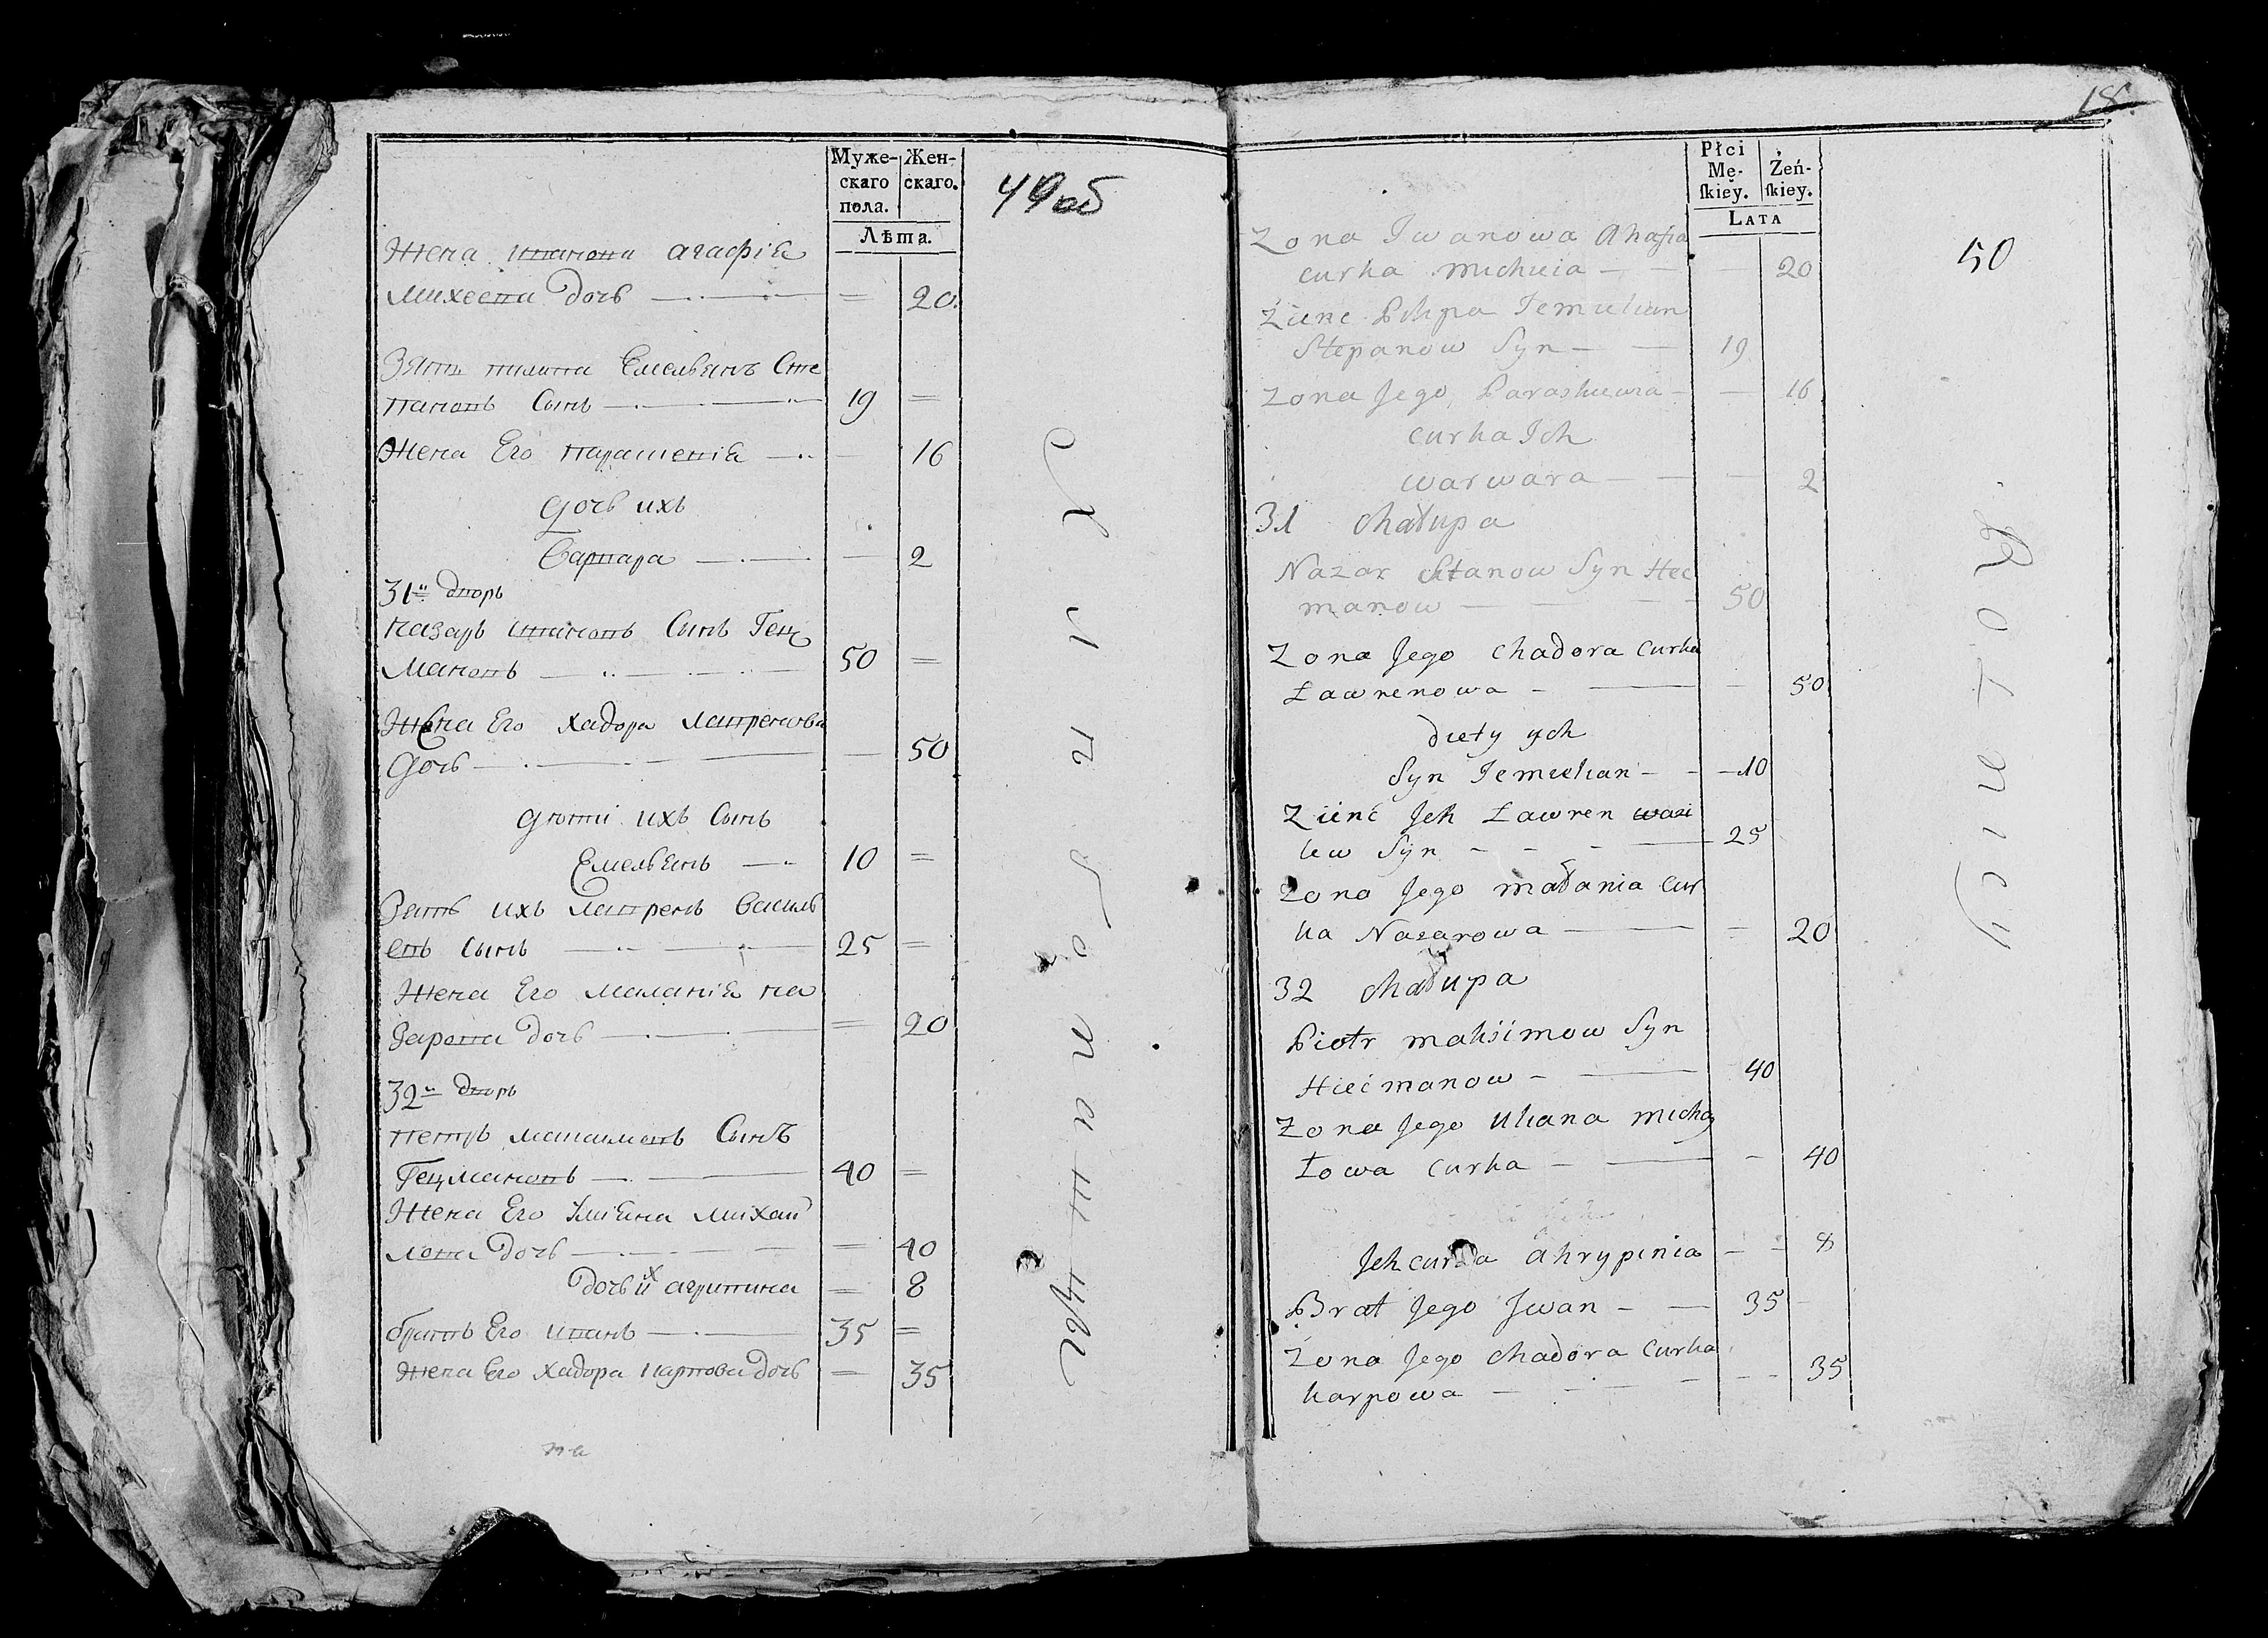 Муже-
скаго
пола.
Жен-
скаго.
Лѣта.
49об
Жена иванова агафіа
михеева дочь — 20.
Зять пилипа Емельянъ Сте
пановъ Сынъ — 19
Жена Его парасковіа — 16
дочь ихъ
Варвара — 2
31й дворъ
назаръ ивановъ Сынъ Гец
мановъ — 50
Жена Его хадора лавренова
дочь — 50
дѣти ихъ Сынъ
Емельянъ — 10
Зять ихъ лавренъ василь
евъ Сынъ — 25
Жена Его маланіа на
зарова дочь — 20
32й дворъ
петръ максимовъ Сынъ
Гецмановъ — 40
Жена Его Уліана михай
лова дочь — 40
дочь их агрипина — 8
братъ Его иванъ — 35
Жена Его хадора карпова дочь — 35
18.
Płci
Mę-
skiey.
Żeń-
skiey.
LATA
50
Zona Iwanowa Ahafia
curka micheia — 20
Zienc Pilipa Iemielian
Stepanow Syn — 19
Zona Jego Paraskiewia — 16
curka Ich
warwara — 2
31 Chałupa
Nazar Iwanow Syn Hec
manow — 50
Zona Jego Chadora Curka
Ławrenowa — 50
diety ych
Syn Iemielian — 10
Zienć Jch Ławren wasi
lew Syn — 25
Zona Jego małania Cur
ka Nazarowa — 20
32 Chałupa
Piotr maksimow Syn
Hiećmanow — 40
Zona Jego Uliana micha
łowa Curka — 40
Jch curka Ahrypinia — 8
Brat Jego Jwan — 35
Zona Jego Chadora Curka
karpowa — 35